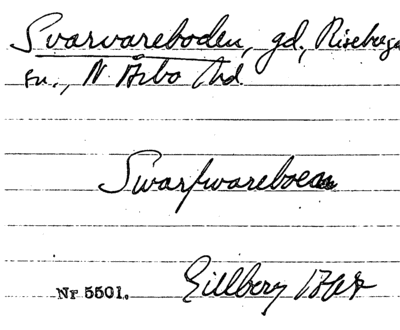 Svarvareboden, gd, Riseberga
sn., N. Åsbo hd.
Swarfwareboen
Nr 5501. Gillberg